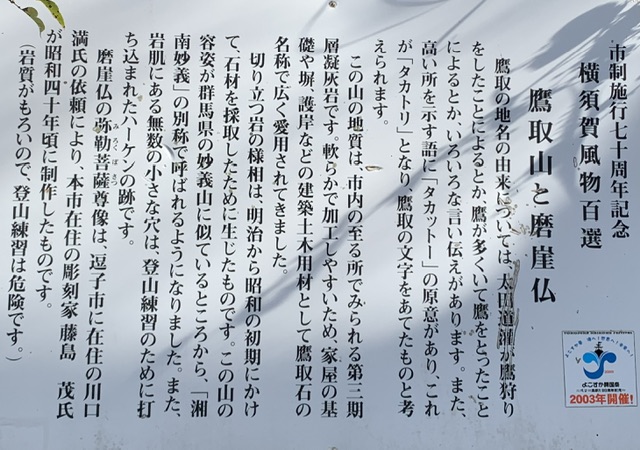 市制施行七十周年記念
横須賀風物百選
鷹取山と磨崖仏
鷹取の地名の由来については、太田道灌が鷹狩り
をしたことによるとか、鷹が多くいて鷹をとったこと
によるとか、いろいろな言い伝えがあります。また、
高い所を示す語に「タカットー」の原意があり、これ
が「タカトリ」となり、鷹取の文字をあてたものと考
えられます。
この山の地質は、市内の至る所でみられる第三期
層凝灰岩です。軟らかで加工しやすいため、家屋の基
礎や塀、護岸などの建築土木用材として鷹取石の
名称で広く愛用されてきました。
切り立つ岩の様相は、明治から昭和の初期にかけ
て、石材を採取したために生じたものです。この山の
容姿が群馬県の妙義山に似ているところから、「湘
南妙義」の別称で呼ばれるようになりました。また、
岩肌にある無数の小さな穴は、登山練習のために打
ち込まれたハーケンの跡です。
磨崖仏の弥勒菩薩尊像は、逗子市に在住の川口
みろくぼさつ
満氏の依頼により、本市在住の彫刻家 藤島 茂氏
が昭和四十年頃に制作したものです。
(岩質がもろいので、登山練習は危険です。)
よこすか開国祭
2003年開催!